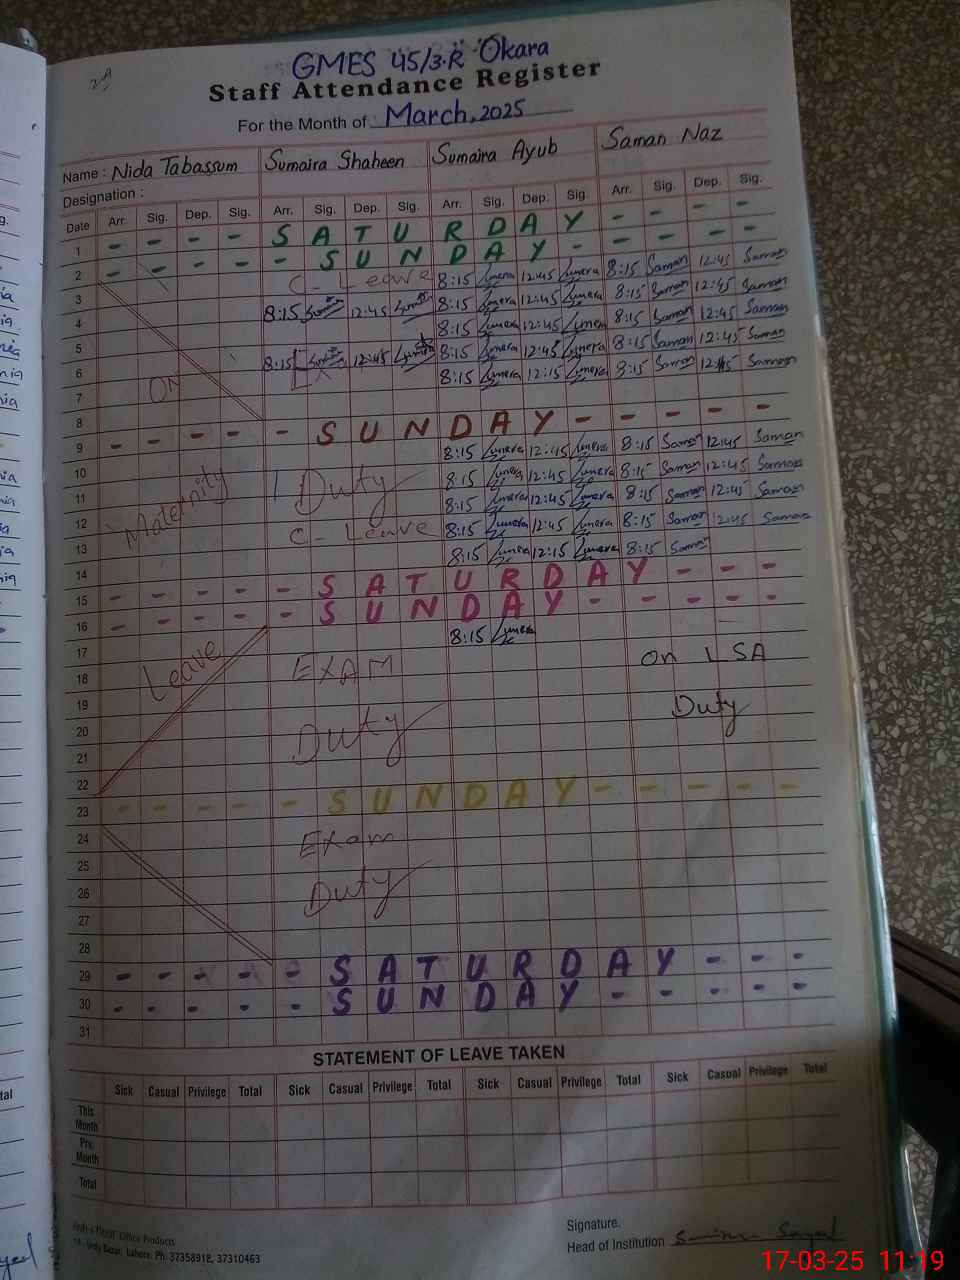 GMES 45/3.R Okara
Staff Attendance Register
For the Month of March, 2025
Name : Nida Tabassum Sumaira Shaheen Sumaira Ayub Saman Naz
Designation :
Date Arr. Sig. Dep. Sig. Arr. Sig. Dep. Sig. Arr. Sig. Dep. Sig. Arr. Sig. Dep. Sig.
1 - - - - S A T U R D A Y - - - -
2 - - - - - S U N D A Y - - - - -
3 C- Leave 8:15 12:45 8:15 Saman 12:45 Saman
4 8:15 12:45 8:15 12:45 8:15 Saman 12:45 Saman
5 8:15 12:45 8:15 Saman 12:45 Saman
6 8:15 12:45 8:15 12:45 8:15 Saman 12:45 Saman
7 ON Ex 8:15 12:15 8:15 Saman Saman
8
9 - - - - - S U N D A Y - - - - -
10 8:15 12:45 8:15 Saman 12:45 Saman
11 Maternity Duty 8:15 12:45 8:15 Saman 12:45 Saman
12 8:15 12:45 8:15 Saman 12:45 Saman
13 C- Leave 8:15 12:45 8:15 Saman 12:45 Saman
14 8:15 12:15 8:15 Saman
15 - - - - - S A T U R D A Y - - -
16 - - - - - S U N D A Y - - - - -
17 8:15
18 Leave EXAM On LSA
19
20 Duty Duty
21
22
23 - - - - - S U N D A Y - - - - - -
24
25 Exam
26
27 Duty
28
29 - - - - - S A T U R D A Y - - -
30 - - - - - S U N D A Y - - - - -
31
STATEMENT OF LEAVE TAKEN
Sick Casual Privilege Total Sick Casual Privilege Total Sick Casual Privilege Total Sick Casual Privilege Total
This Month
Prv. Month
Total
Office Products
Urdu Bazar, Lahore. Ph: 37358918, 37310463
Signature.
Head of Institution
17-03-25 11:19